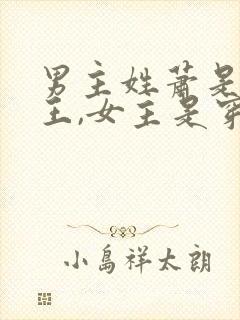 男主姓萧是
王,女主是穿
小岛祥太朗